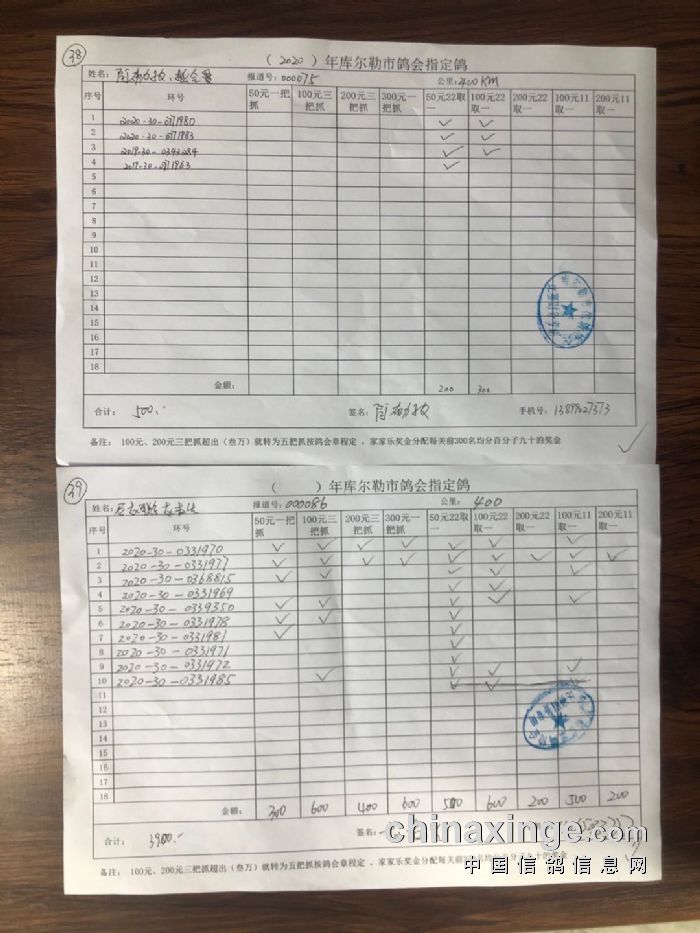 38
( 2020 ) 年库尔勒市鸽会指定鸽
姓名： 报道号：000075 公里：400KM
序号 环号 50元一把抓 100元三把抓 200元三把抓 300元一把抓 50元22取一 100元22取一 200元22取一 100元11取一 200元11取一
1 ✓ ✓
2 ✓ ✓
3 2019-30- ✓ ✓
4 ✓
5
6
7
8
9
10
11
12
13
14
15
16
17
18
金额： 200 300
合计： 500.- 签名： 手机号：
备注： 100元、200元三把抓超出（叁万）就转为五把抓按鸽会章程定 ，家家乐奖金分配每关前300名均分百分子九十的奖金
39
( ) 年库尔勒市鸽会指定鸽
姓名： 报道号：000086 公里： 400
序号 环号 50元一把抓 100元三把抓 200元三把抓 300元一把抓 50元22取一 100元22取一 200元22取一 100元11取一 200元11取一
1 2020-30-0331970 ✓ ✓ ✓ ✓ ✓ ✓ ✓
2 2020-30-0331977 ✓ ✓ ✓ ✓ ✓ ✓ ✓ ✓ ✓
3 2020-30-0368815 ✓ ✓ ✓ ✓
4 2020-30-0331969 ✓ ✓
5 2020-30-0339350 ✓ ✓ ✓ ✓ ✓
6 2020-30-0331978 ✓ ✓ ✓
7 2020-30-0331981 ✓ ✓
8 2020-30-0331971 ✓
9 2020-30-0331972 ✓ ✓ ✓
10 2020-30-0331985 ✓ ✓ ✓
11
12
13
14
15
16
17
18
金额： 300 600 400 600 500 600 200 500 200
合计： 3900.- 签名：
备注： 100元、200元三把抓超出（叁万）就转为五把抓按鸽会章程定 ，家家乐奖金分配每关前
chinaxinge.com
中国信鸽信息网